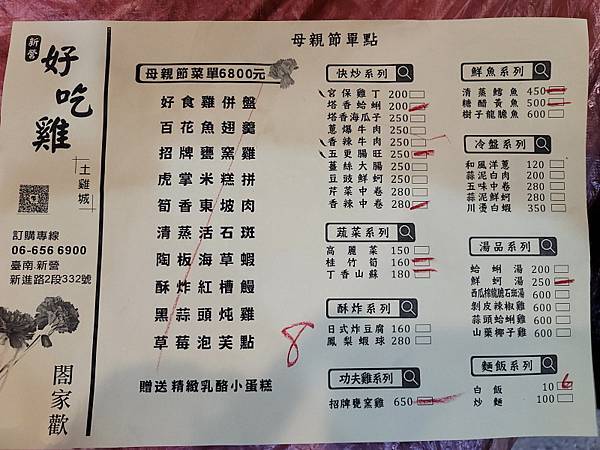 新營
好吃雞
土雞城
訂購專線
06-656 6900
臺南.新營
新進路2段332號
闔家歡
母親節單點
母親節菜單6800元
好食雞併盤
百花魚翅羹
招牌甕窯雞
虎掌米糕拼
筍香東坡肉
清蒸活石斑
陶板海草蝦
酥炸紅糟鰻
黑蒜頭炖雞
草莓泡芙點
贈送精緻乳酪小蛋糕
8
快炒系列
宮保雞丁 200
塔香蛤蜊 200
塔香海瓜子 250
蔥爆牛肉 250
香辣牛肉 250
五更腸旺 250
薑絲大腸 280
豆豉鮮蚵 280
芹菜中卷 280
香辣中卷 280
蔬菜系列
高麗菜 150
桂竹筍 160
丁香山蘇 180
酥炸系列
日式炸豆腐 160
鳳梨蝦球 280
功夫雞系列
招牌甕窯雞 650
鮮魚系列
清蒸鱈魚 450
糖醋黃魚 500
樹子龍膽魚 600
冷盤系列
和風洋蔥 120
蒜泥白肉 200
五味中卷 280
蒜泥鮮蚵 280
川燙白蝦 350
湯品系列
蛤蜊湯 200
鮮蚵湯 250
西瓜綿龍膽石斑湯 600
剝皮辣椒雞 600
蒜頭蛤蜊雞 600
山藥椰子雞 600
麵飯系列
白飯 10 6
炒麵 100